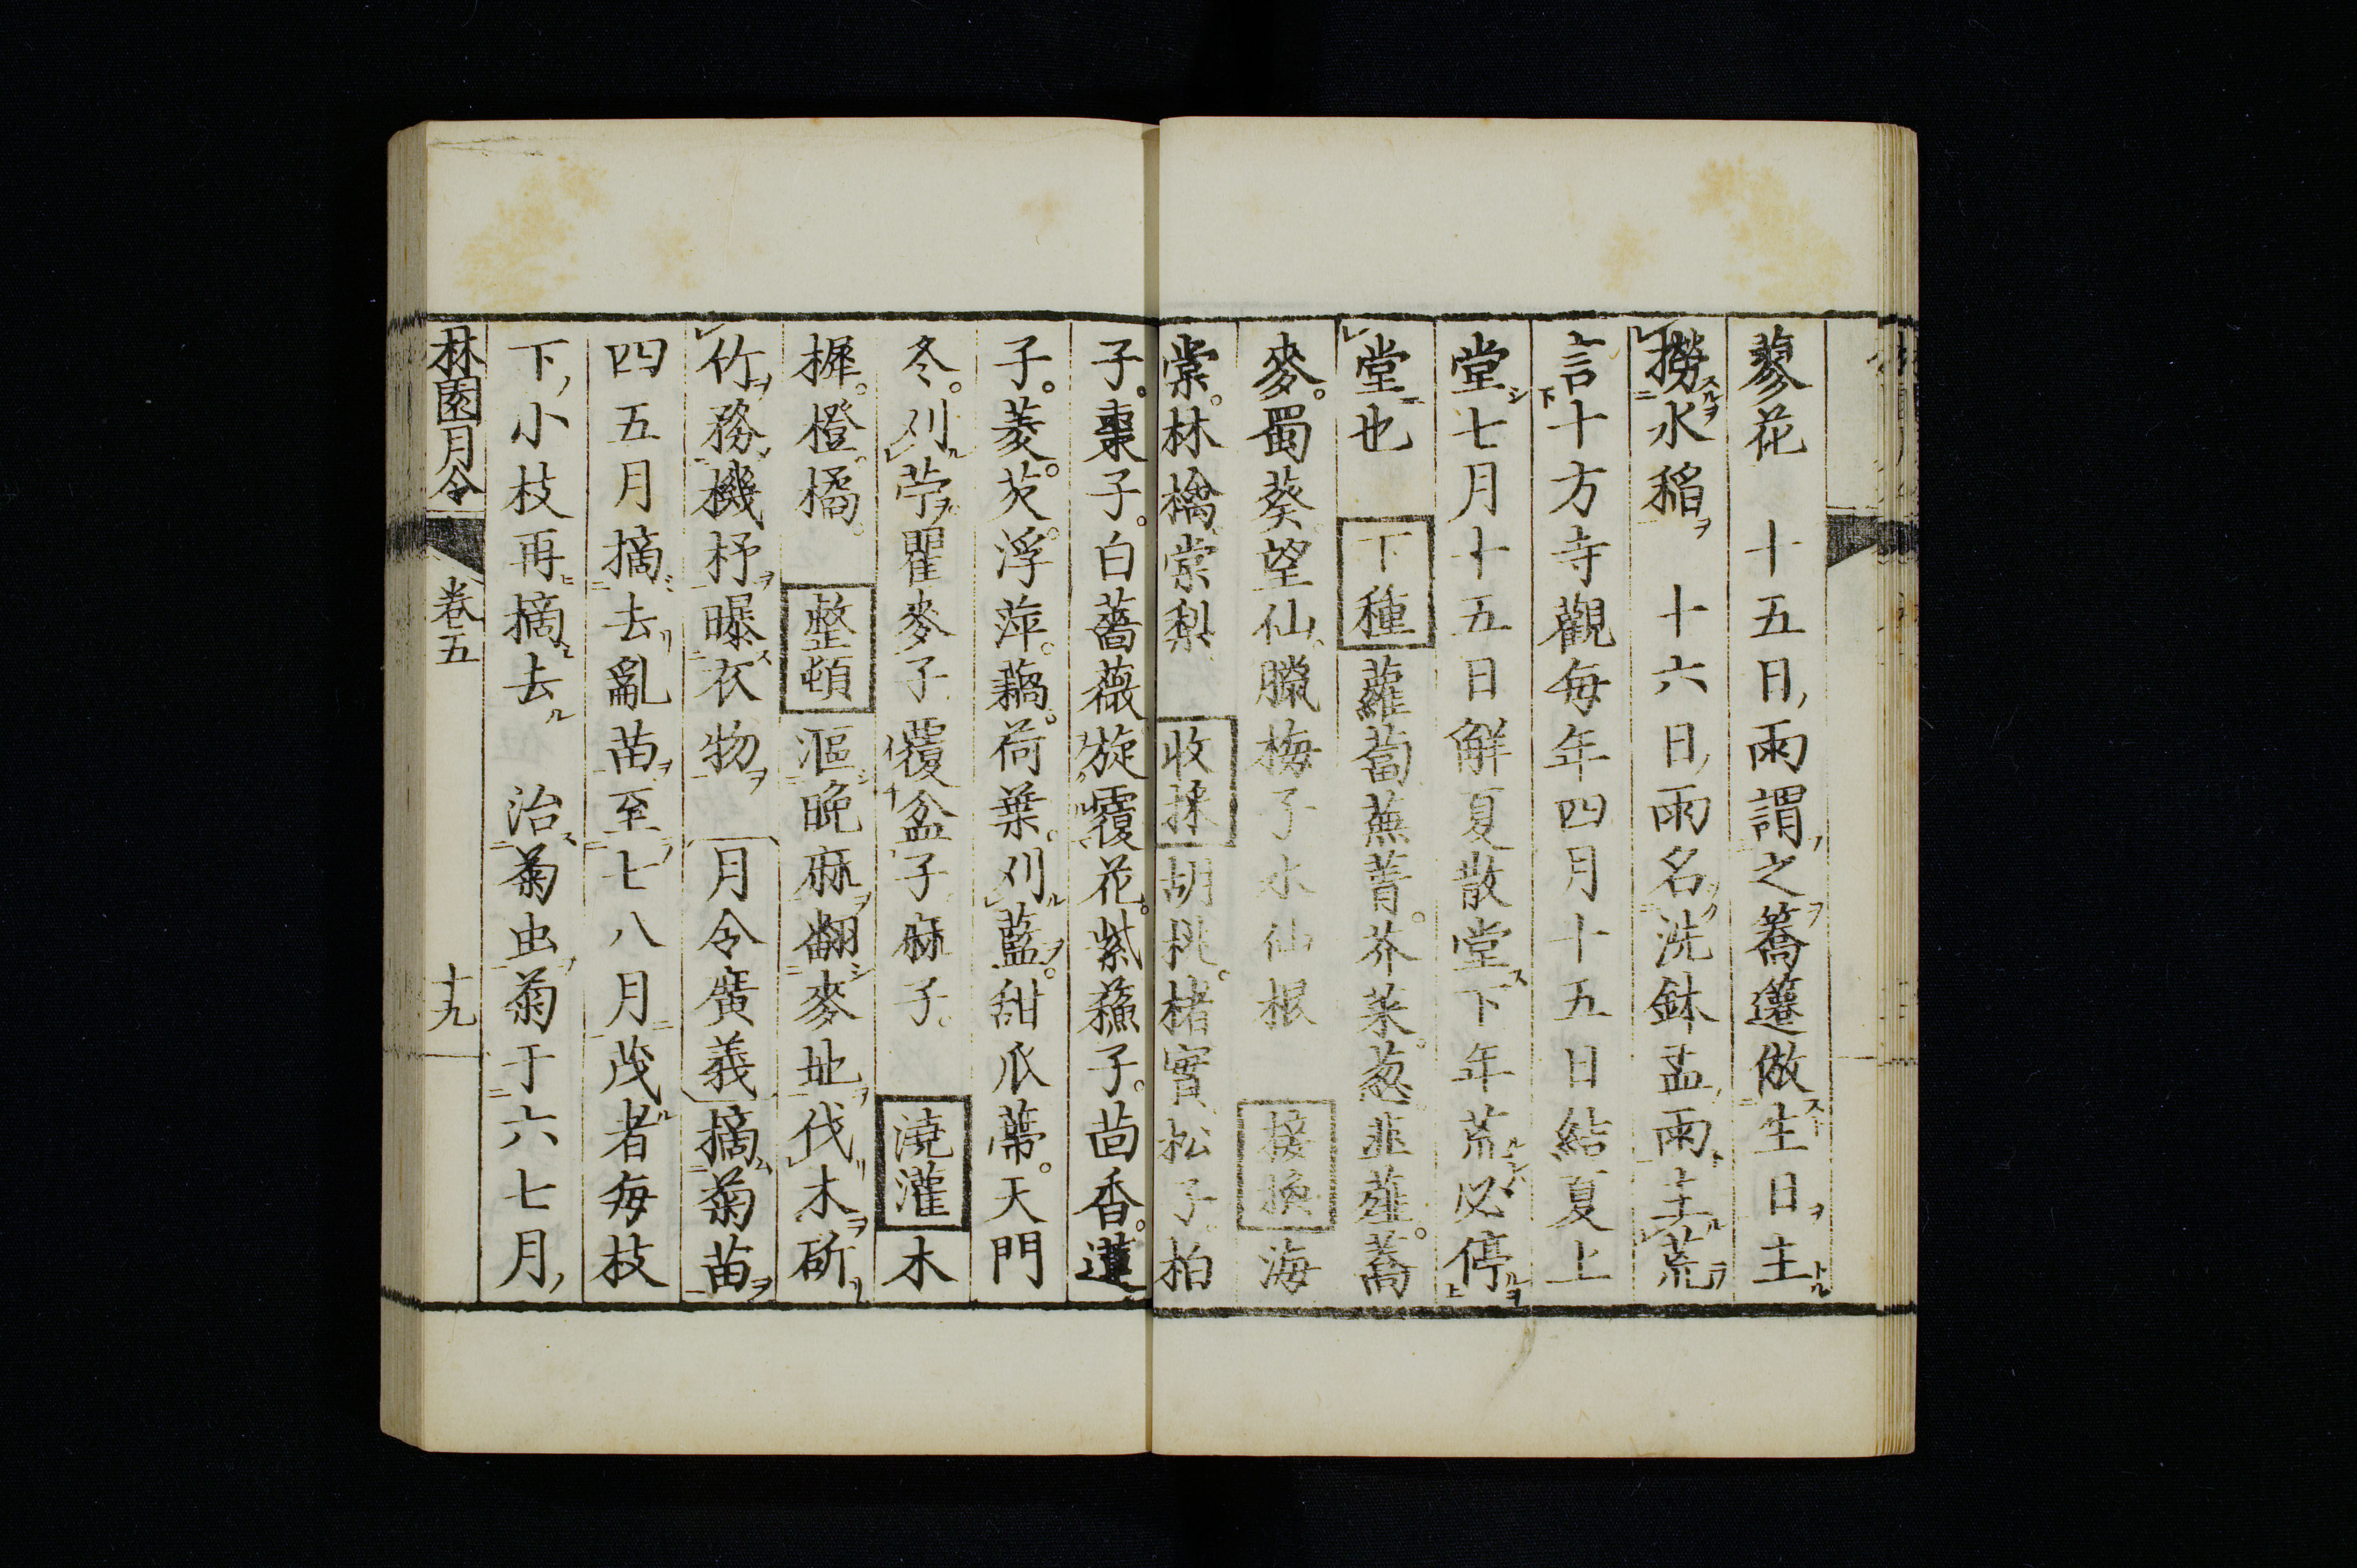 蓼花　十五日雨謂之蕎䕪做生日主
撈水稲　十六日雨名洗鉢盂雨主荒
言十方寺觀毎年四月十五日結夏上
堂七月十五日解夏散堂下年荒必停
堂也　下種蘿蔔蕪菁。芥菜。葱韭薤。蕎
麥。蜀葵望仙。臘梅子水仙根　接換海
棠。林檎棠梨　收採胡桃。楮實松子。柏
子。棗子。白薔薇旋覆花。紫蘇子。茴香。蓮
子。菱。芡。浮萍。藕。荷葉。刈藍。甜瓜蒂。天門
冬。刈苧。瞿麥子覆盆子麻子。　澆灌木
樨。橙。橘。　整頓漚晩麻翻麥地伐木斫
竹務機杼曝衣物　月令廣義摘菊苗
四五月摘去亂苗至七八月茂者毎枝
下小枝再摘去　治菊虫菊于六七月
林園月令　卷五　十九